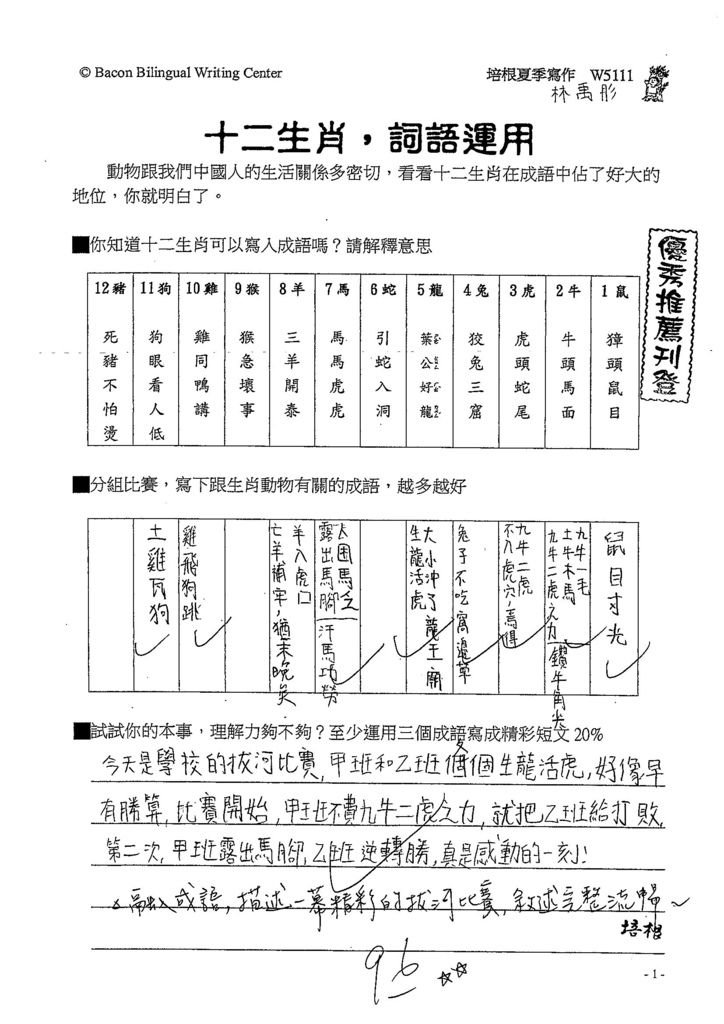 © Bacon Bilingual Writing Center
培根夏季寫作 W5111
林禹彤
十二生肖，詞語運用
動物跟我們中國人的生活關係多密切，看看十二生肖在成語中佔了好大的
地位，你就明白了。
優秀推薦刊登
■你知道十二生肖可以寫入成語嗎？請解釋意思
1鼠 獐頭鼠目
2牛 牛頭馬面
3虎 虎頭蛇尾
4兔 狡兔三窟
5龍 葉公好龍
6蛇 引蛇入洞
7馬 馬馬虎虎
8羊 三羊開泰
9猴 猴急壞事
10雞 雞同鴨講
11狗 狗眼看人低
12豬 死豬不怕燙
■分組比賽，寫下跟生肖動物有關的成語，越多越好
鼠目寸光
九牛一毛
土牛木馬
九牛二虎之力
鑽牛角尖
九牛二虎
不入虎穴，焉得
兔子不吃窩邊草
大水沖了龍王廟
生龍活虎
人困馬乏
露出馬腳
汗馬功勞
羊入虎口
亡羊補牢，猶未晚矣
雞飛狗跳
土雞瓦狗
■試試你的本事，理解力夠不夠？至少運用三個成語寫成精彩短文20%
今天是學校的拔河比賽，甲班和乙班個個生龍活虎，好像早
有勝算，比賽開始，甲班不費九牛二虎之力，就把乙班給打敗，
第二次，甲班露出馬腳，乙班逆轉勝，真是感動的一刻！
融入成語，描述一幕精彩的拔河比賽，敘述完整流暢~
培根
96
-1-